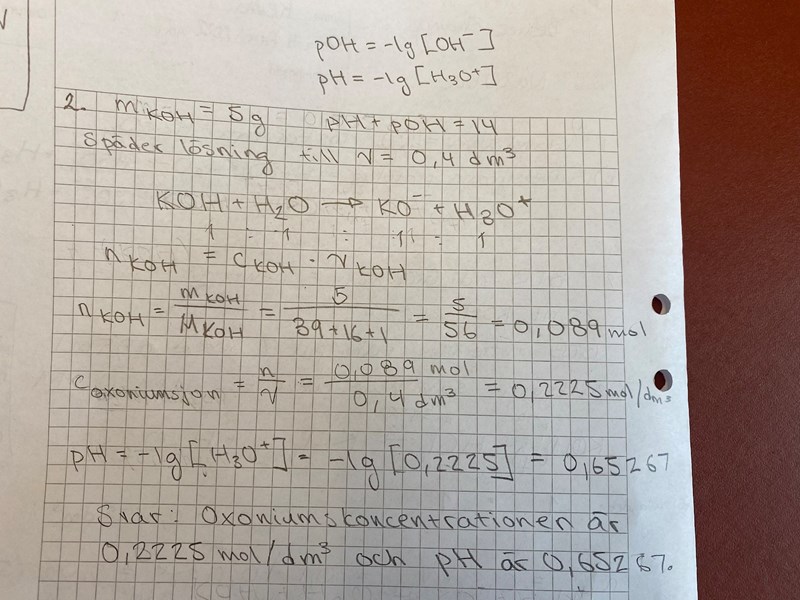 pOH = -lg [OH⁻]
pH = -lg [H₃O⁺]
2. m KOH = 5g pH + pOH = 14
Späder lösning till v = 0,4 dm³
KOH + H₂O → KO⁻ + H₃O⁺
1 : 1 : 1 : 1
n KOH = c KOH · v KOH
n KOH = m KOH / M KOH = 5 / 39+16+1 = 5/56 = 0,089 mol
c oxoniumsjon = n/v = 0,089 mol / 0,4 dm³ = 0,2225 mol/dm³
pH = -lg [H₃O⁺] = -lg [0,2225] = 0,65267
Svar: Oxoniumskoncentrationen är
0,2225 mol/dm³ och pH är 0,65267.